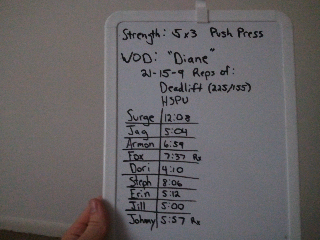 Strength: 5x3 Push Press
WOD: "Diane"
21-15-9 Reps of:
Deadlift (225/155)
HSPU
Surge 12:08
Jag 5:04
Armon 6:59
Fox 7:37 Rx
Dori 4:10
Steph 8:06
Erin 5:12
Jill 5:00
Johnny 5:57 Rx